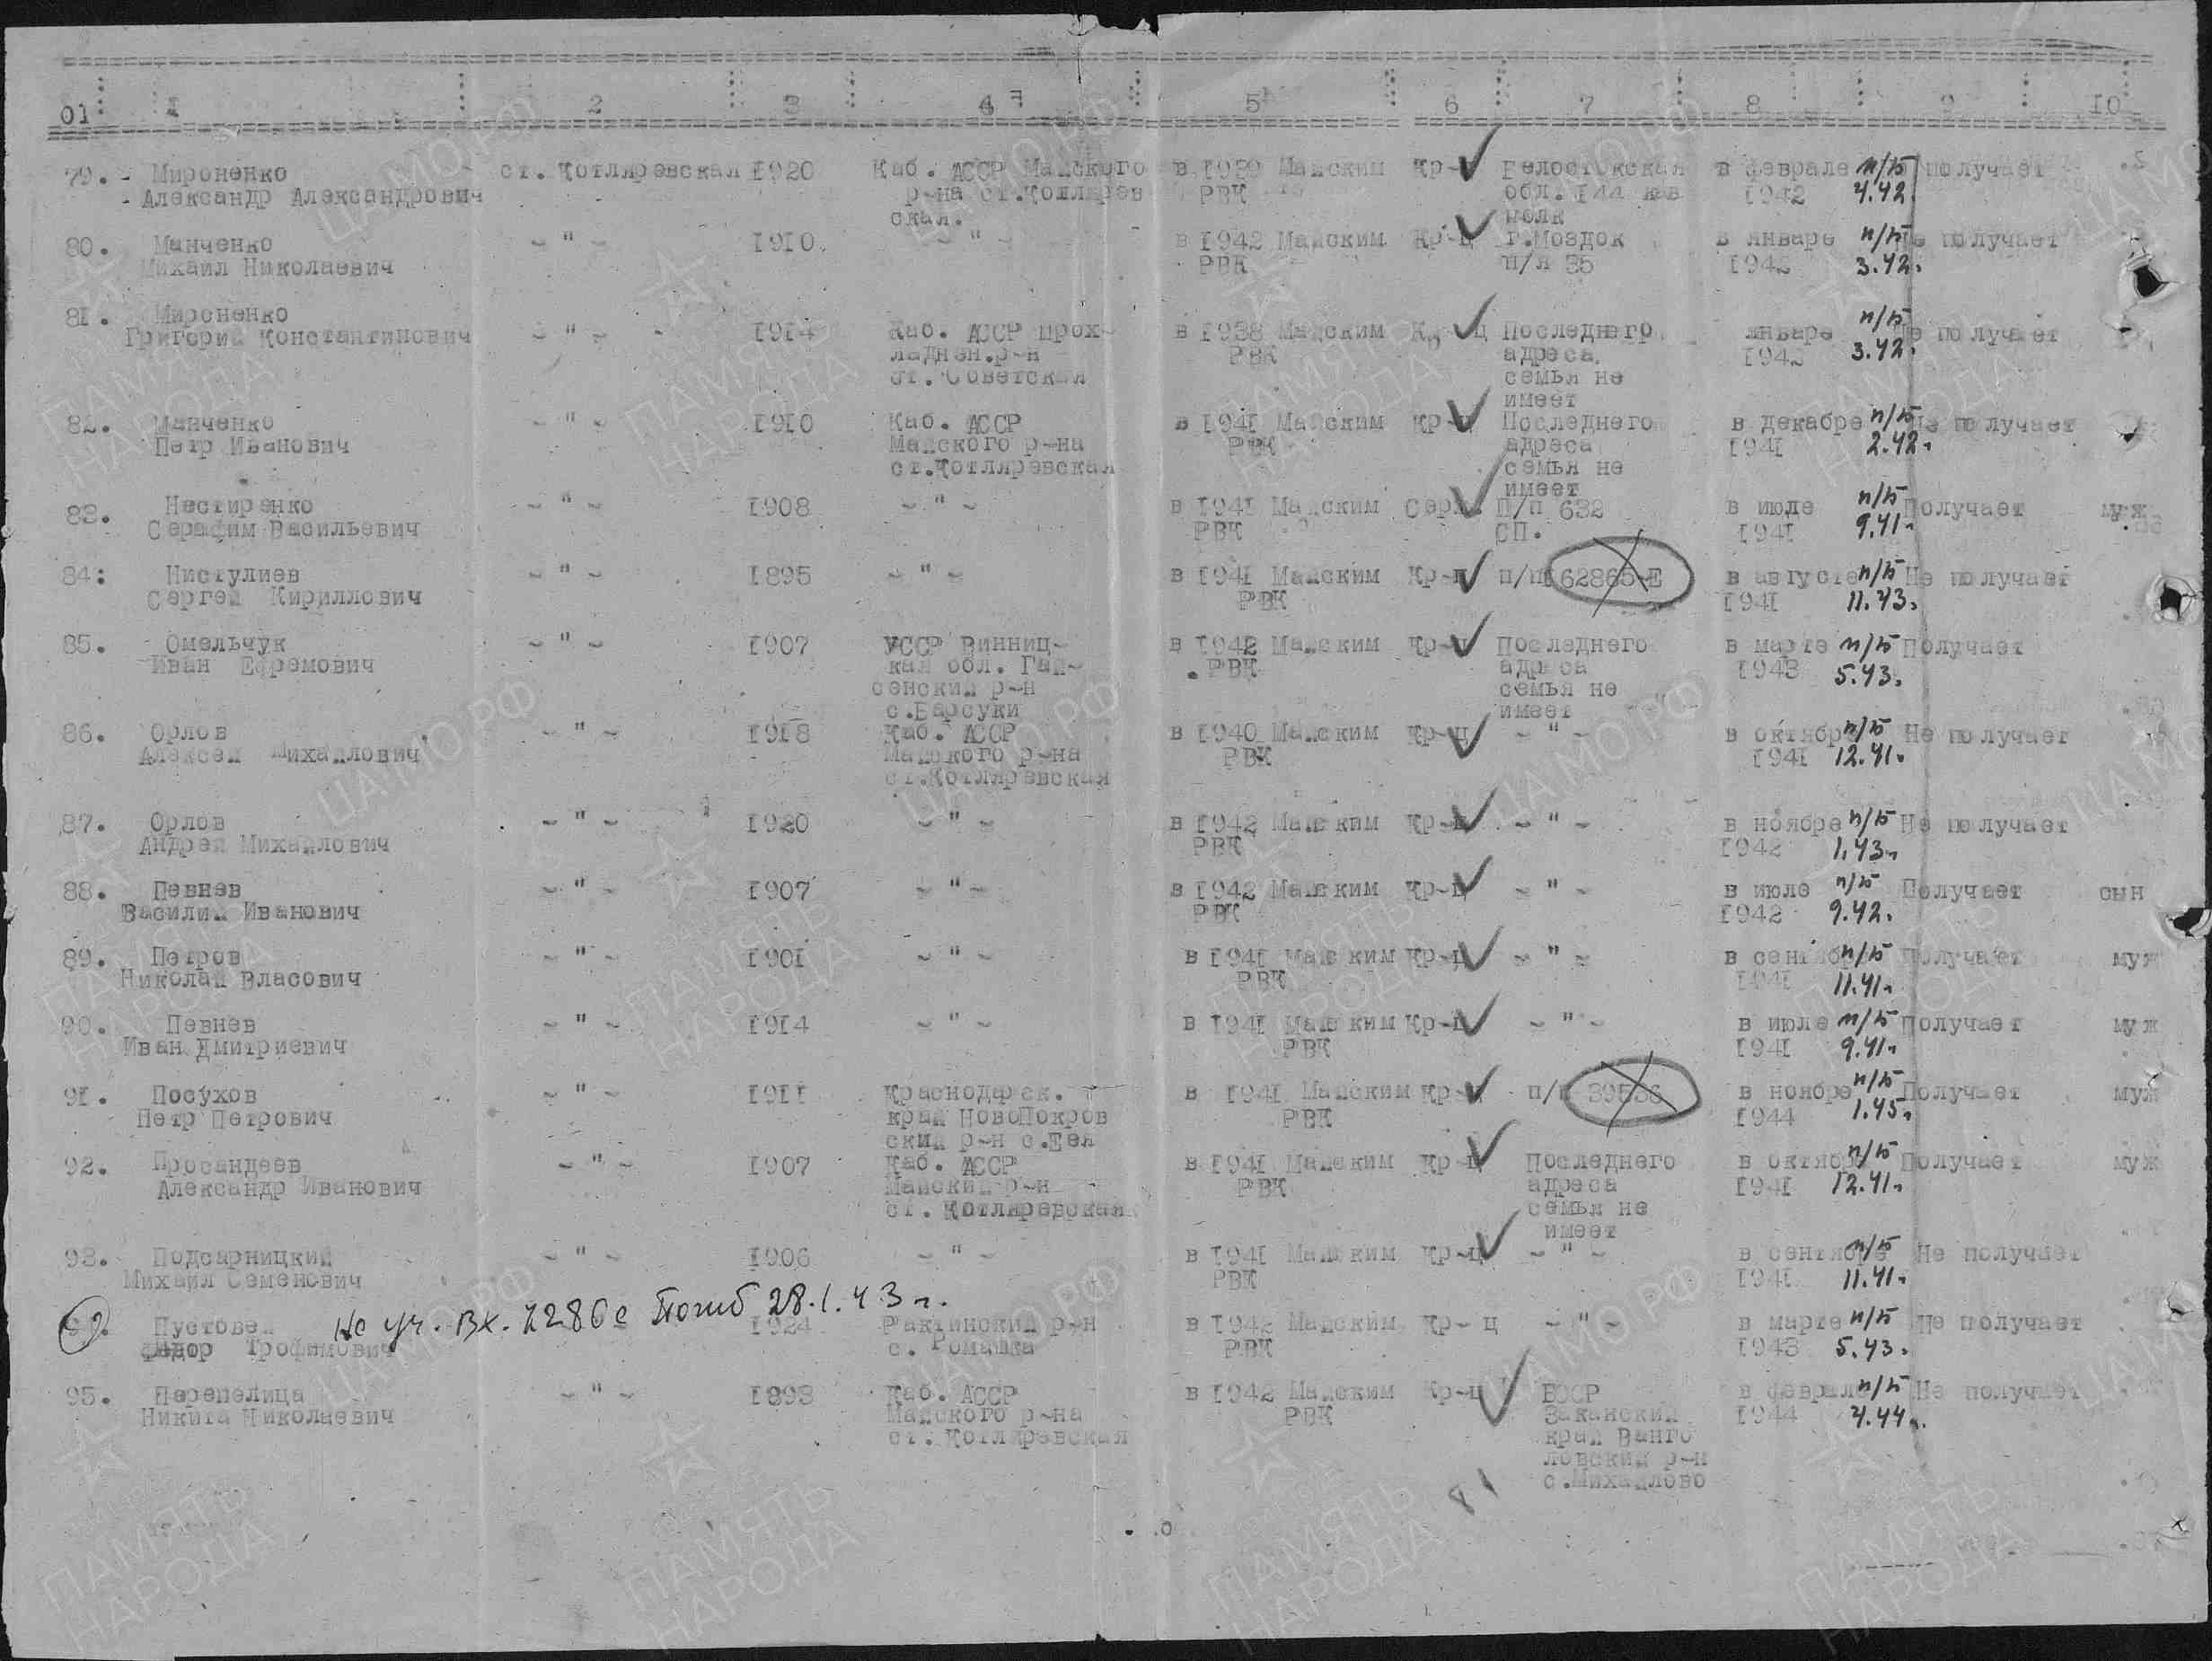 01 1 2 3 4 5 6 7 8 9 10
79. Мироненко ст.Котляревская 1920 Каб. АССР Майского в 1939 Майским Кр-ц Белостокская в феврале п/б получает
Александр Александрович р-на ст.Котлярев РВК обл. 144 кав 1942 4.42.
ская. полк
80. Манченко - " - 1910 - " - в 1942 Майским Кр-ц г.Моздок в январе п/б Не получает
Михаил Николаевич РВК п/я 35 1942 3.42.
81. Мироненко п/б
Григорий Константинович - " - 1914 Каб. АССР Прох- в 1938 Майским Последнего январе Не получает
ладнен.р-н РВК адреса 1942 3.42.
ст. Советская семья не
имеет
82. Манченко - " - 1910 Каб. АССР в 1941 Майским Кр-ц Последнего в декабре п/б Не получает
Петр Иванович Майского р-на РВК адреса 1941 2.42.
ст.Котляревская семья не
имеет
83. Нестиренко - " - 1908 - " - в 1941 Майским Серж П/п 632 в июле п/б Получает муж
Серафим Васильевич РВК СП. 1941 9.41.
84. Нистулиев - " - 1895 - " - в 1941 Майским Кр-ц п/п 62865-Е в августе п/б Не получает
Сергей Кириллович РВК 1941 11.43.
85. Омельчук - " - 1907 УССР Винниц- в 1942 Майским Кр-ц Последнего в марте п/б Получает
Иван Ефремович кая обл. Гай- РВК адреса 1943 5.43.
сенский р-н семья не
с.Барсуки имеет
86. Орлов - " - 1918 Каб. АССР в 1940 Майским Кр-ц - " - в октябр п/б Не получает
Алексей Михайлович Майского р-на РВК 1941 12.41.
ст.Котляревская
87. Орлов - " - 1920 - " - в 1942 Майским Кр-ц - " - в ноябре п/б Не получает
Андрей Михайлович РВК 1942 1.43.
88. Певнев - " - 1907 - " - в 1942 Майским Кр-ц - " - в июле п/б Получает сын
Василий Иванович РВК 1942 9.42.
89. Петров - " - 1901 - " - в 1941 Майским Кр-ц - " - в сентябр п/б Получает муж
Николай Власович РВК 1941 11.41.
90. Певнев - " - 1914 - " - в 1941 Майским Кр-ц - " - в июле п/б Получает муж
Иван Дмитриевич РВК 1941 9.41.
91. Посухов - " - 1911 Краснодарск. в 1941 Майским Кр-ц п/п в ноябре п/б Получает муж
Петр Петрович край НовоПокров РВК 1944 1.45.
ский р-н с.Еея
92. Просандеев - " - 1907 Каб. АССР в 1941 Майским Кр-ц Последнего в октябр п/б Получает муж
Александр Иванович Майский р-н РВК адреса 1941 12.41.
ст. Котляревская семья не
имеет
93. Подсарницкий - " - 1906 - " - в 1941 Майским Кр-ц - " - в сентябре п/б Не получает
Михаил Семенович РВК 1941 11.41.
Не уч. Вх. Погиб 28.1.43 г.
Пустовей 1924 Рактинский р-н в 1942 Майским Кр-ц - " - в марте п/б Не получает
Федор Трофимович с. Ромашка РВК 1943 5.43.
95. Перепелица - " - 1893 Каб. АССР в 1942 Майским Кр-ц БССР в феврале п/б Не получает
Никита Николаевич Майского р-на РВК Заканский 1944 4.44.
ст. Котляревская край Ванго
ловский р-н
с.Михайлово
81